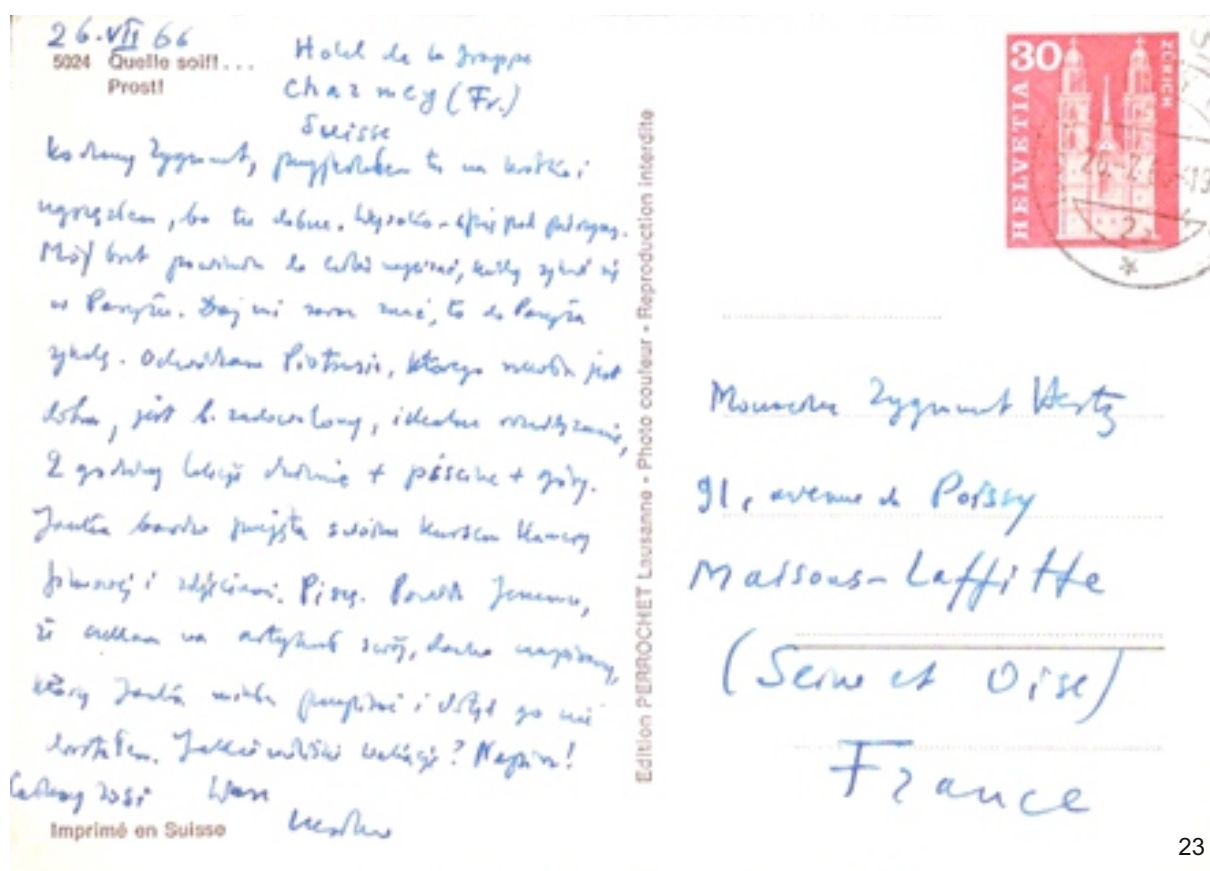 26.VII 66
5024 Quelle soif! ...
Prost!
Hotel de la
Charmey (Fr.)
Suisse
Kochany Zygmunt, przyjechałem tu na krótko i
, bo tu dobrze. Wysoko
Mój brat powinien do Ciebie napisać, kiedy zjawi się
w Paryżu. Daj mi zaraz znać, to do Paryża
zjadę. Odwiedziłem Piotrusia, którego
, jest b. zadowolony, idealne rozwiązanie,
2 godziny lekcji dziennie + piscine + góry.
Janka bardzo przejęta swoim kursem kamery
filmowej i zdjęciami. Piszę. Powiedz
że czekam na artykuł swój, dawno napisany,
który Janka miała przepisać i dotąd go nie
dostałem. Jakże wakacje? Napisz!
Całuję Zosię Wasz
Czesław
Imprimé en Suisse
Edition PERROCHET Lausanne - Photo couleur - Reproduction interdite
30
HELVETIA
ZÜRICH
Monsieur Zygmunt Hertz
91, avenue de Poissy
Maisons-Laffitte
(Seine et Oise)
France
23